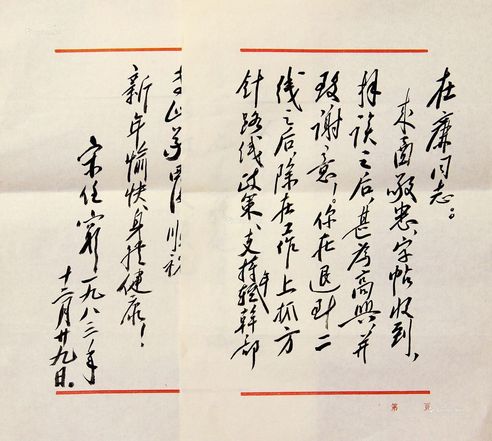 在廉同志。
来函敬悉、字帖收到、
拜读之后、甚为高兴、并
致谢意！你在退到二
线之后、除在工作上抓方
针路线政策、支持年轻干部
顺祝
新年愉快、身体健康！
宋任穷 一九八三年
十二月廿九日。
第 頁